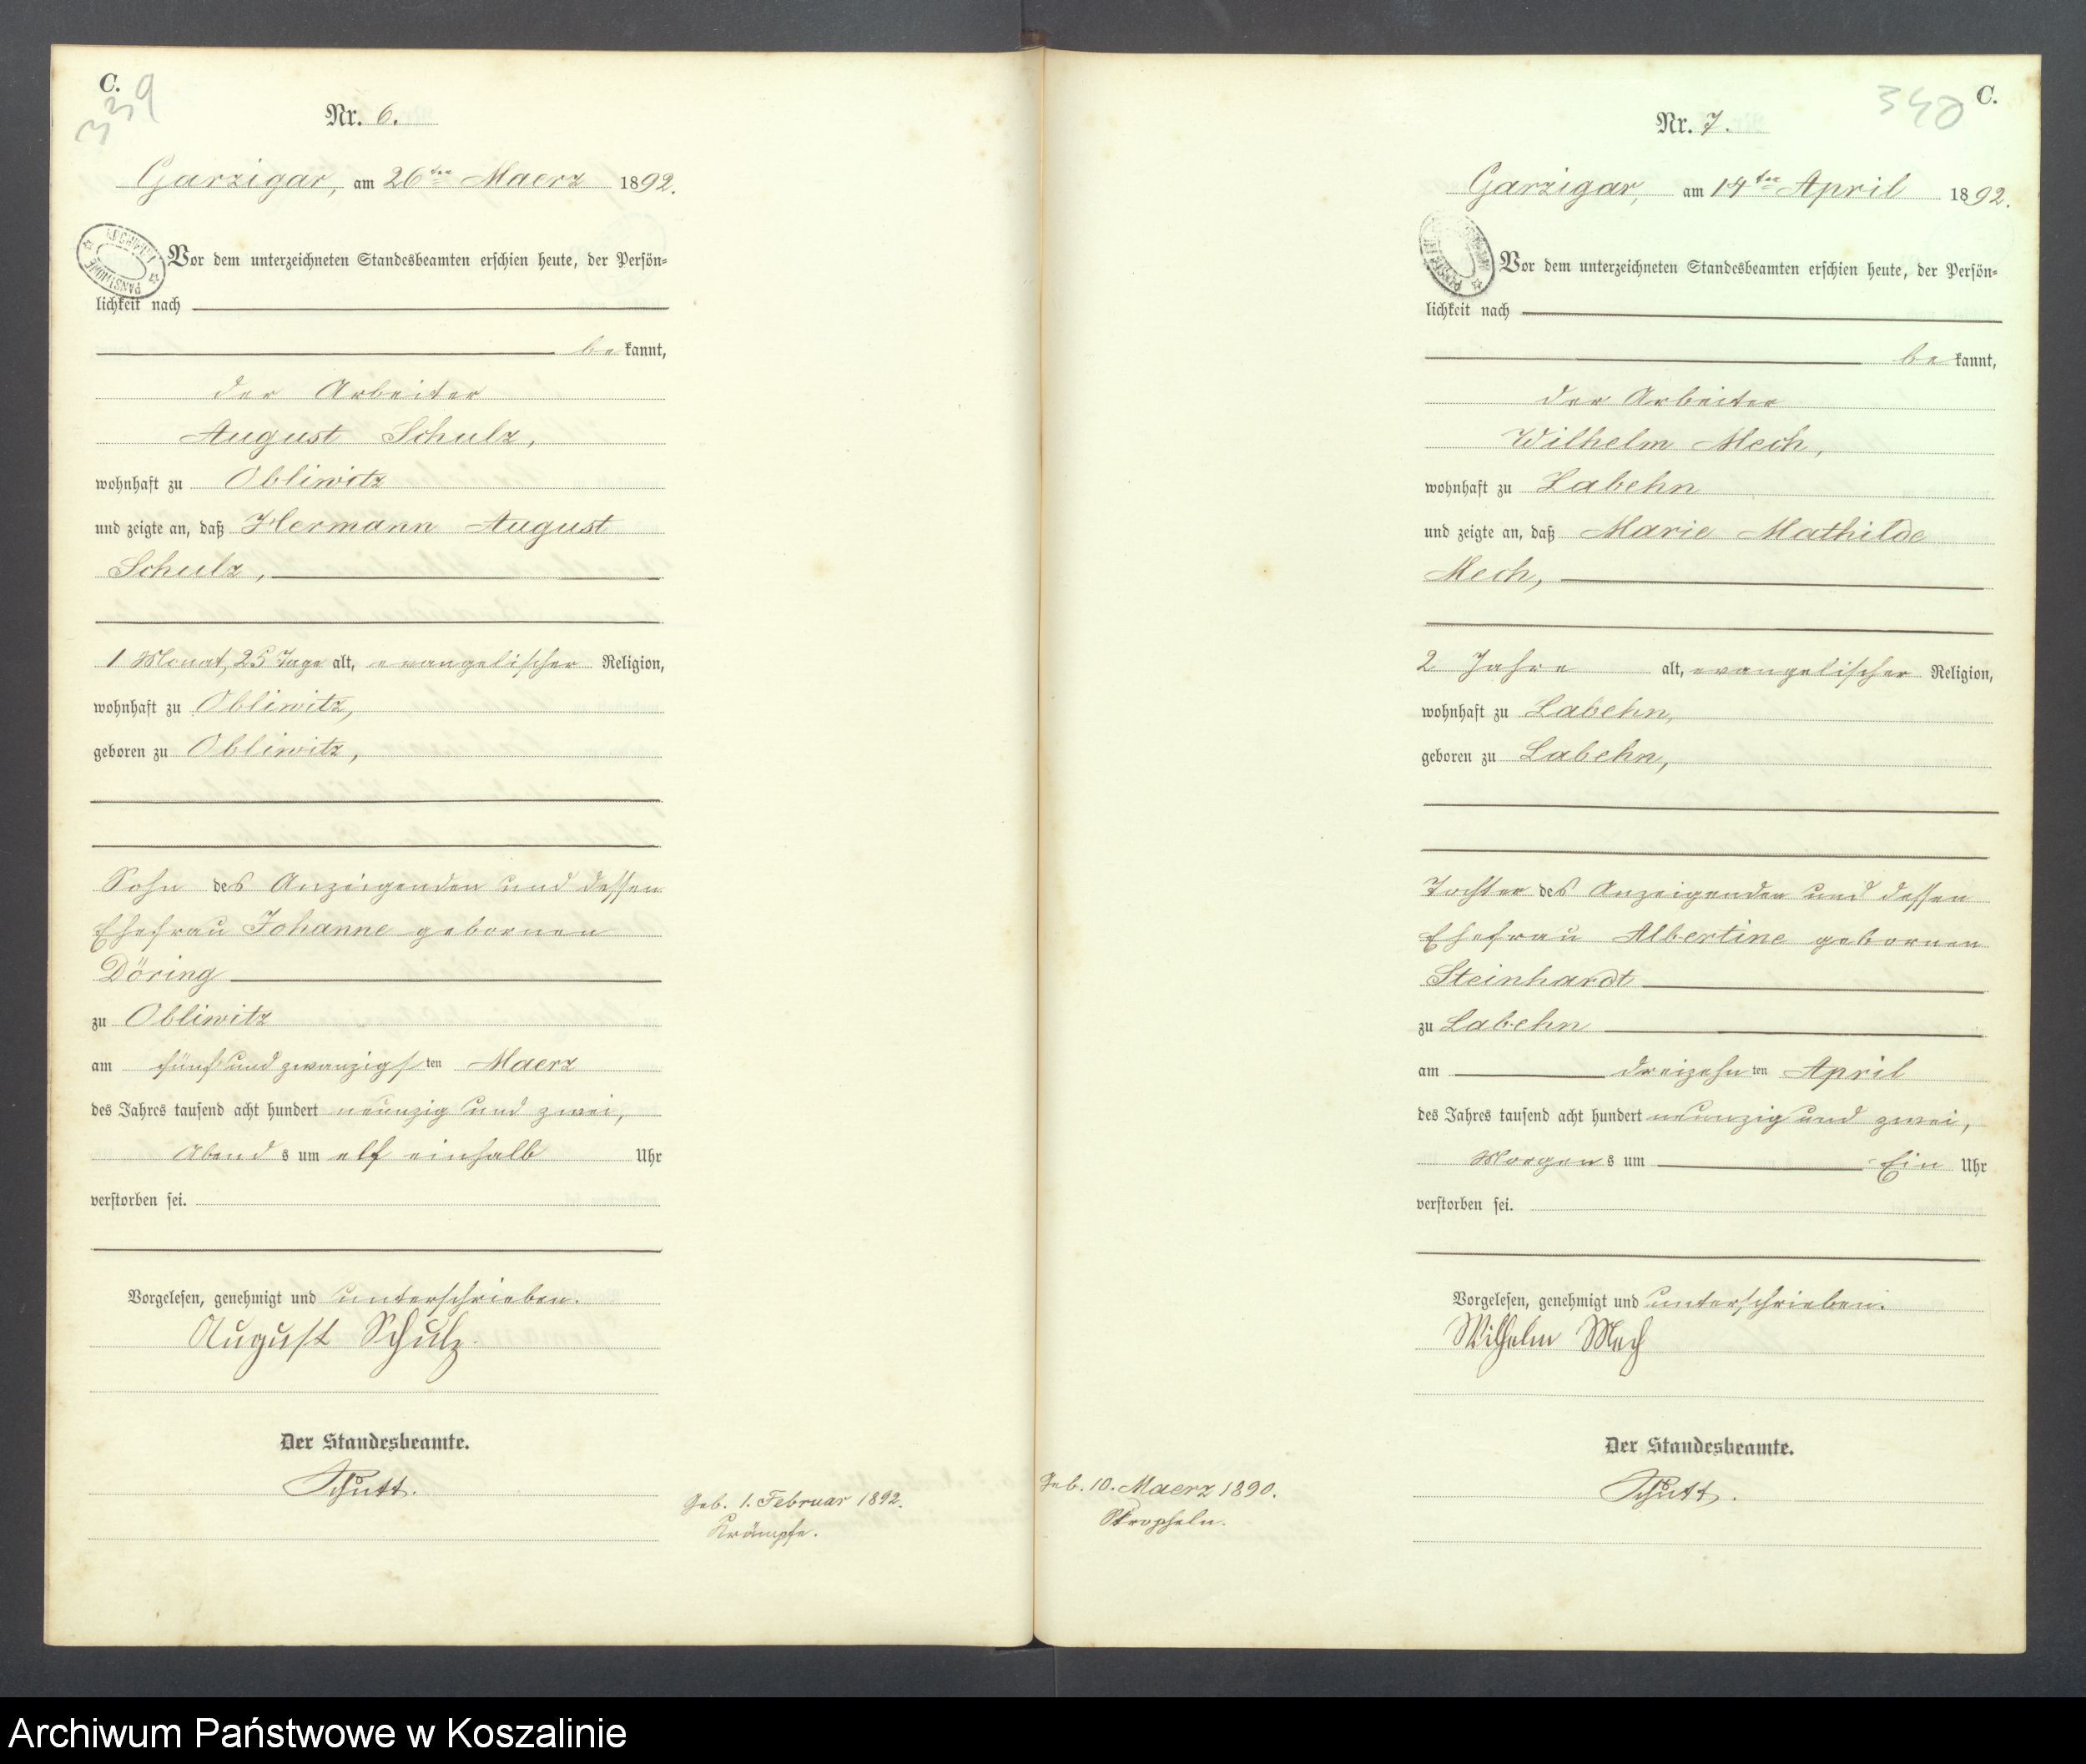 C.
339
Nr. 6.
Garzigar, am 26ten Maerz 1892.
Vor dem unterzeichneten Standesbeamten erschien heute, der Persön-
lichkeit nach
be kannt,
der Arbeiter
August Schulz,
wohnhaft zu Obliwitz
und zeigte an, daß Hermann August
Schulz,
1 Monat, 25 Tage alt, evangelischer Religion,
wohnhaft zu Obliwitz,
geboren zu Obliwitz,
Sohn des Anzeigenden und dessen
Ehefrau Johanne gebornen
Döring
zu Obliwitz
am fünf und zwanzigsten Maerz
des Jahres tausend acht hundert neunzig und zwei,
Abends um elf einhalb Uhr
verstorben sei.
Vorgelesen, genehmigt und unterschrieben.
August Schulz.
Der Standesbeamte.
Schutt.
Geb. 1. Februar 1892.
Krämpfe.
340
C.
Nr. 7.
Garzigar, am 14ten April 1892.
Vor dem unterzeichneten Standesbeamten erschien heute, der Persön-
lichkeit nach
be kannt,
der Arbeiter
Wilhelm Mech,
wohnhaft zu Labehn
und zeigte an, daß Marie Mathilde
Mech,
2 Jahre alt, evangelischer Religion,
wohnhaft zu Labehn,
geboren zu Labehn,
Tochter des Anzeigenden und dessen
Ehefrau Albertine gebornen
Steinhardt
zu Labehn
am dreizehnten April
des Jahres tausend acht hundert neunzig und zwei,
Morgens um Ein Uhr
verstorben sei.
Vorgelesen, genehmigt und unterschrieben.
Wilhelm Mech
Der Standesbeamte.
Schutt.
Geb. 10. Maerz 1890.
Skropheln.
Archiwum Państwowe w Koszalinie